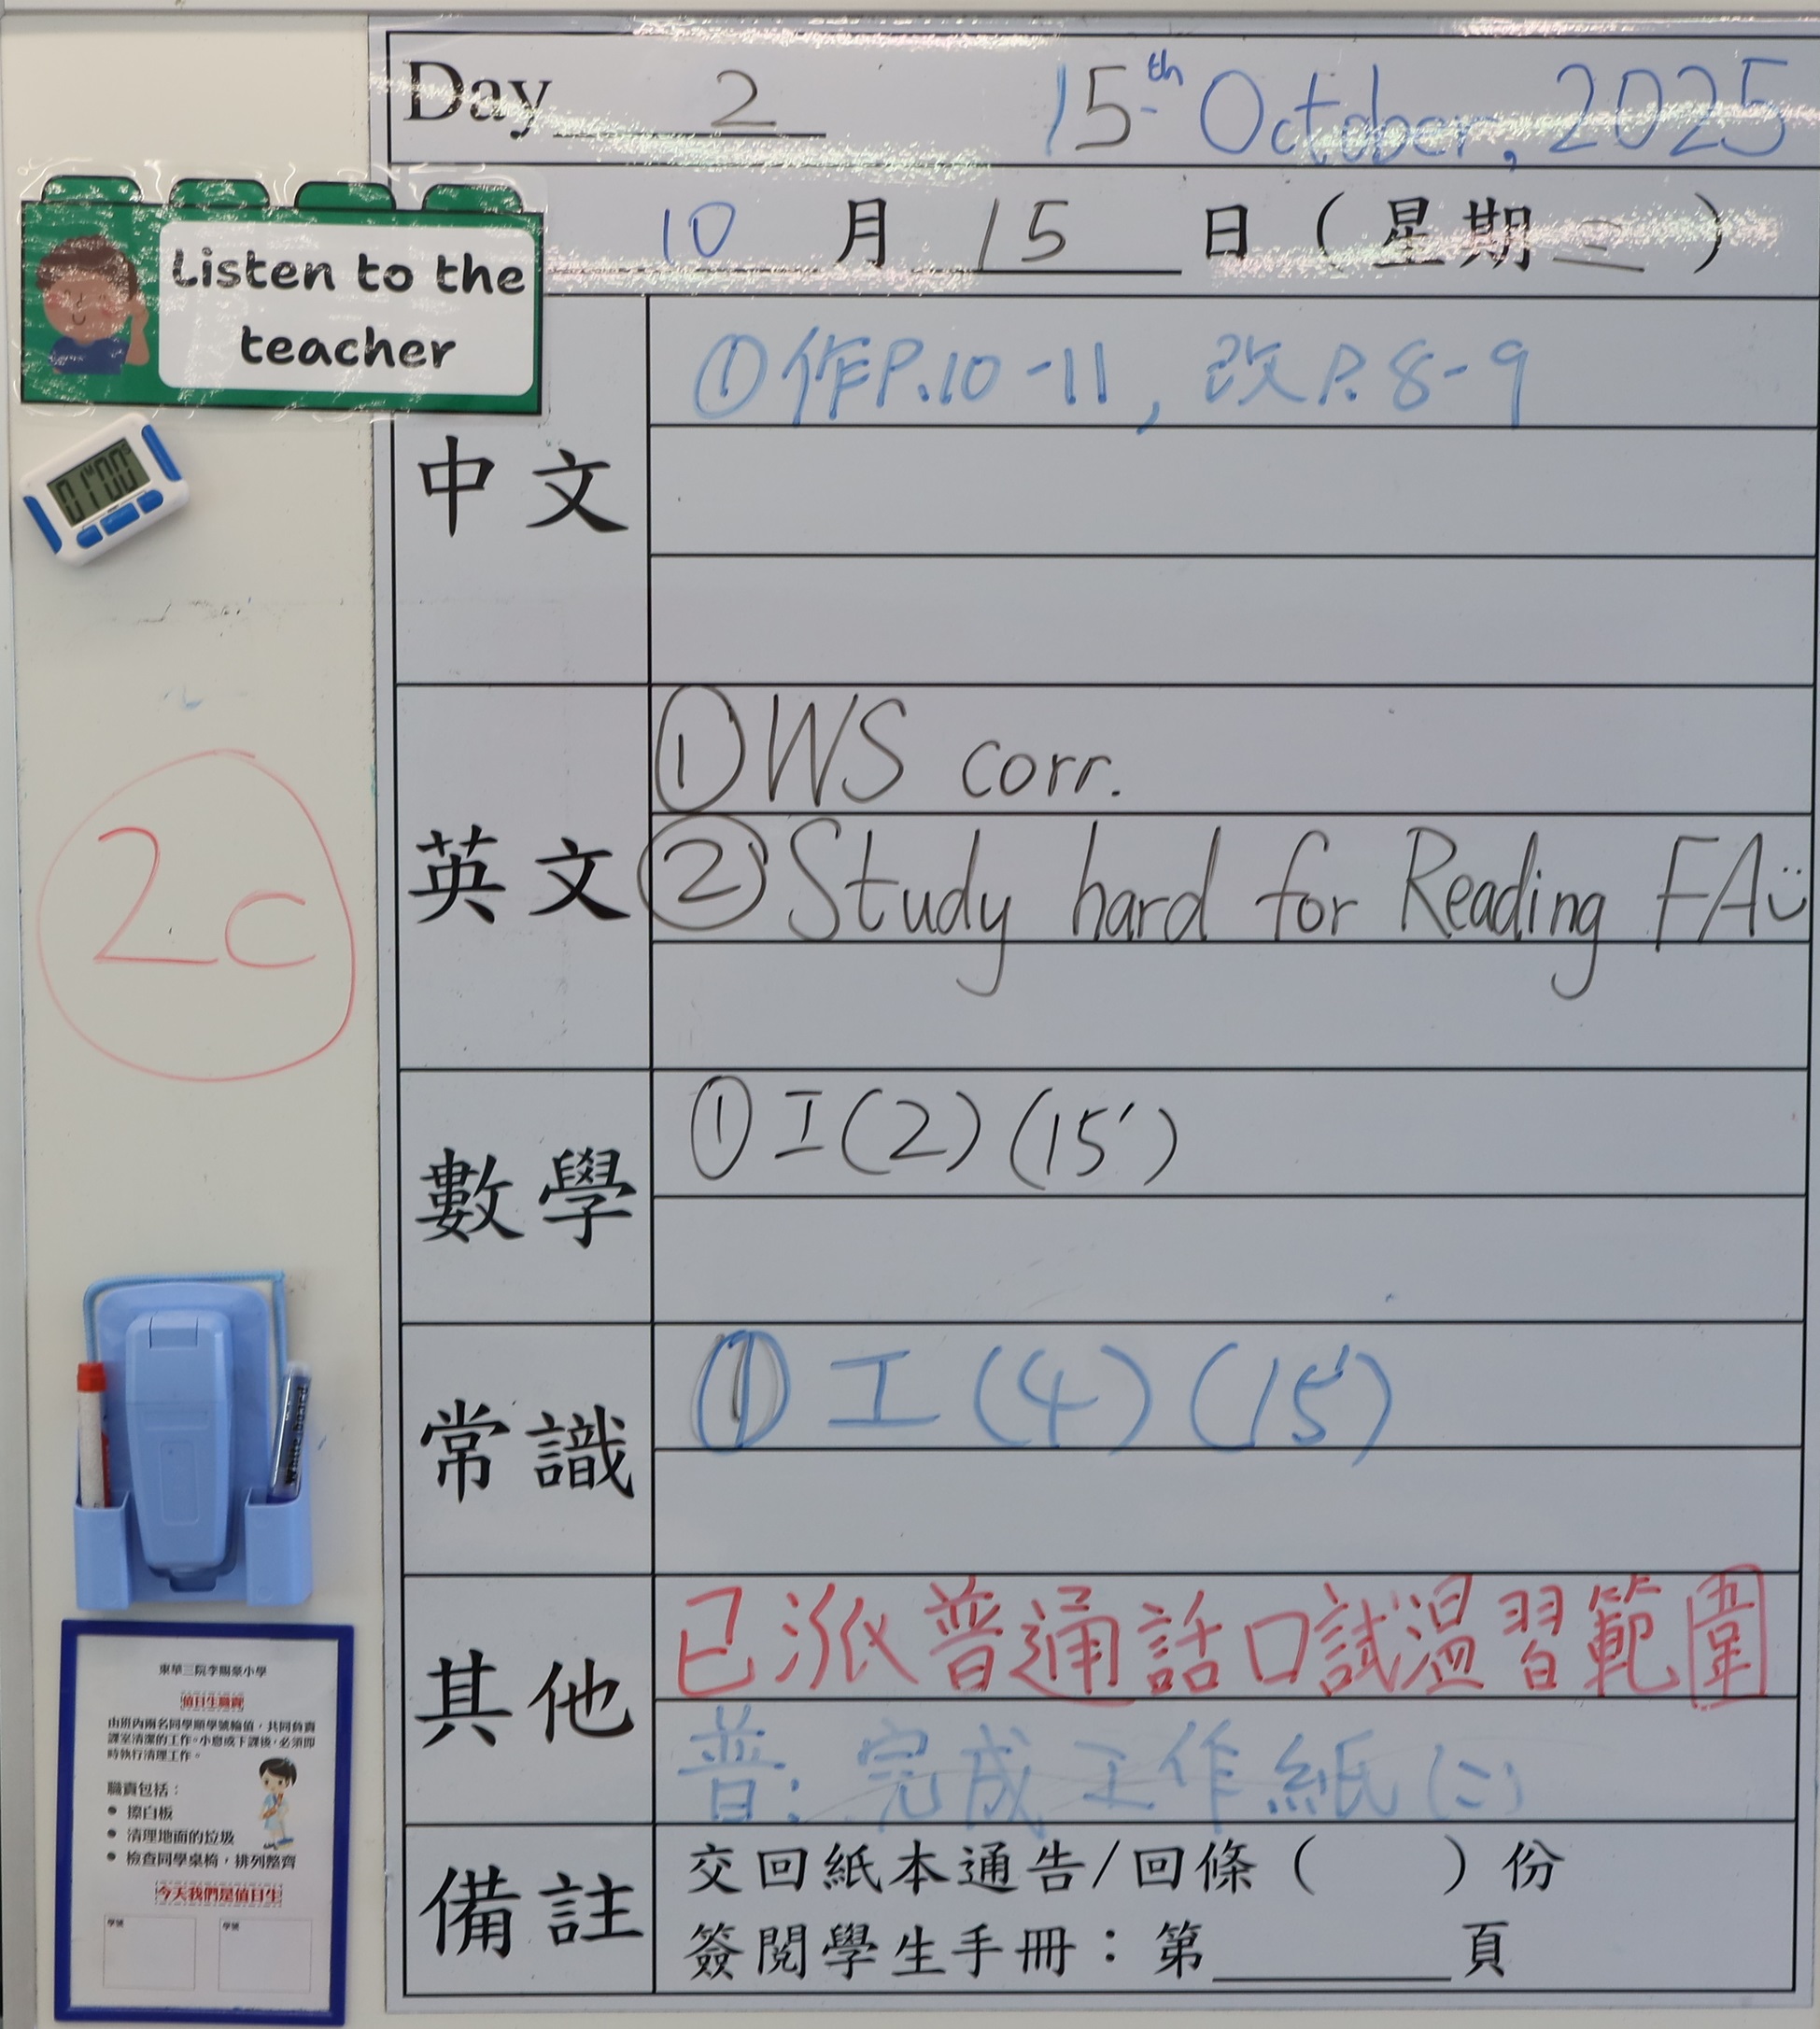 Day 2 15th October, 2025
10 月 15 日 (星期三)
Listen to the
teacher
01 00
中文
①作P.10-11, 改P.8-9
英文
① WS corr.
② Study hard for Reading FA
2C
數學
① I(2) (15')
常識
① I (4) (15')
White board
其他
已派普通話口試溫習範圍
普: 完成工作紙(二)
備註
交回紙本通告/回條( )份
簽閱學生手冊:第 頁
東華三院李賜豪小學
值日生職責
由班內兩名同學順學號輪值,共同負責
課室清潔的工作。小息或下課後,必須即
時執行清理工作。
職責包括:
• 擦白板
• 清理地面的垃圾
• 檢查同學桌椅,排列整齊
今天我們是值日生
學號 學號